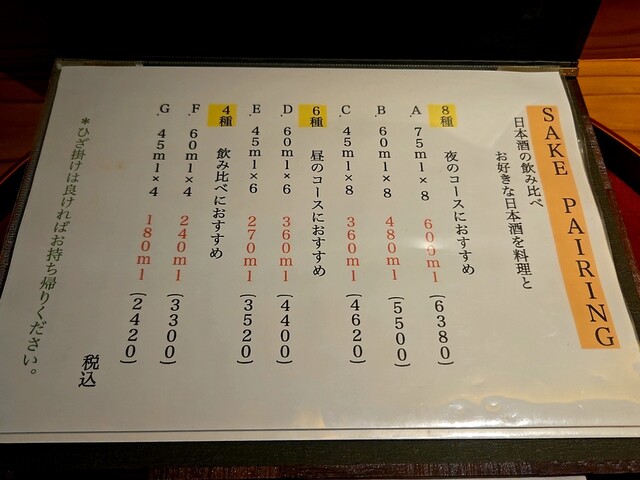 SAKE PAIRING
日本酒の飲み比べ
お好きな日本酒を料理と
8種 夜のコースにおすすめ
A. 75ml×8 600ml (6380)
B. 60ml×8 480ml (5500)
C. 45ml×8 360ml (4620)
6種 昼のコースにおすすめ
D. 60ml×6 360ml (4400)
E. 45ml×6 270ml (3520)
4種 飲み比べにおすすめ
F. 60ml×4 240ml (3300)
G. 45ml×4 180ml (2420)
税込
*ひざ掛けは良ければお持ち帰りください。